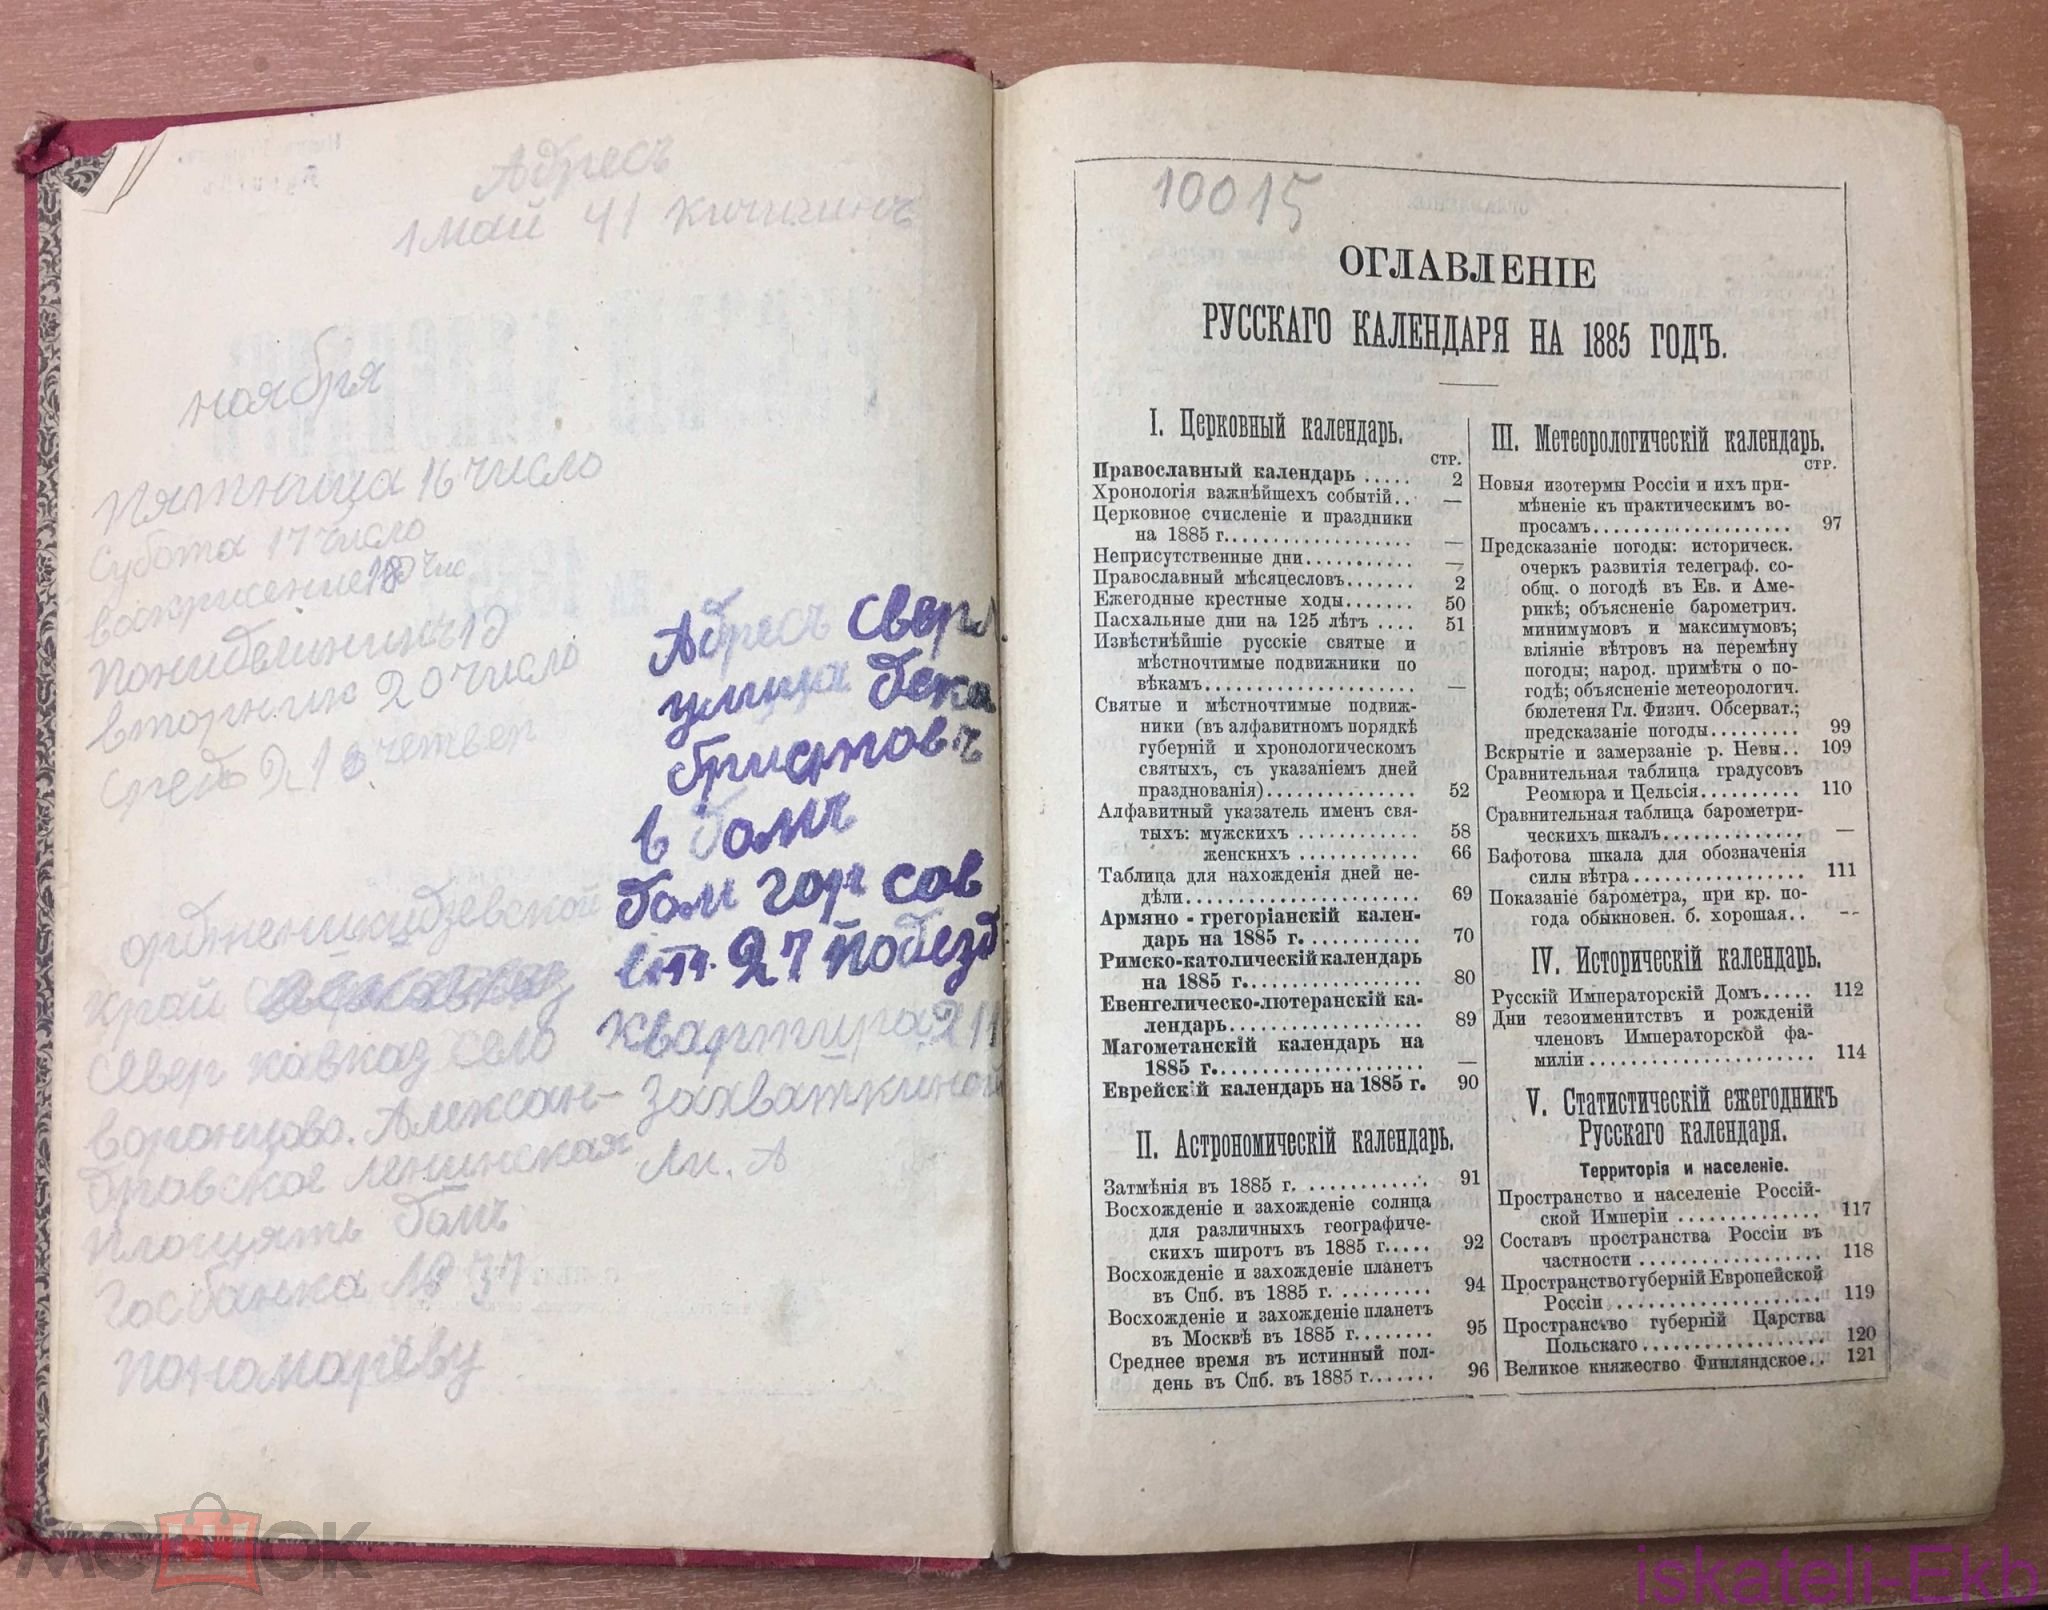 Адресъ
1 май 41
ноября
Пятница 16 число
Субота 17 число
число
вторник 20 число
21 четвер
Адресъ Сверл.
улица дека
бристовъ
в домъ
дом гор сов
27 подезд
квартира 211
Захваткиной
Ли. А
орджникидзевской
край
Север кавказ село
воронцово. Алексан-
дровское ленинская
площять домъ
Госбанка № 37
пономарёву
10015
ОГЛАВЛЕНІЕ
РУССКАГО КАЛЕНДАРЯ НА 1885 ГОДЪ.
I. Церковный календарь.
СТР.
Православный календарь ..... 2
Хронологія важнѣйшехъ событій.. —
Церковное счисленіе и праздники
на 1885 г................... —
Неприсутственные дни........... —
Православный мѣсяцесловъ....... 2
Ежегодные крестные ходы....... 50
Пасхальные дни на 125 лѣтъ .... 51
Извѣстнѣйшіе русскіе святые и
мѣстночтимые подвижники по
вѣкамъ..................... —
Святые и мѣстночтимые подвиж-
ники (въ алфавитномъ порядкѣ
губерній и хронологическомъ
святыхъ, съ указаніемъ дней
празднованія)............... 52
Алфавитный указатель именъ свя-
тыхъ: мужскихъ ............ 58
женскихъ ............ 66
Таблица для нахожденія дней не-
дѣли....................... 69
Армяно - грегоріанскій кален-
дарь на 1885 г. ........... 70
Римско-католическій календарь
на 1885 г.................. 80
Евенгелическо-лютеранскій ка-
лендарь.................... 89
Магометанскій календарь на
1885 г..................... —
Еврейскій календарь на 1885 г. 90
II. Астрономическій календарь.
Затмѣнія въ 1885 г. ............ 91
Восхожденіе и захожденіе солнца
для различныхъ географиче-
скихъ широтъ въ 1885 г..... 92
Восхожденіе и захожденіе планетъ
въ Спб. въ 1885 г. ......... 94
Восхожденіе и захожденіе планетъ
въ Москвѣ въ 1885 г........ 95
Среднее время въ истинный пол-
день въ Спб. въ 1885 г....... 96
III. Метеорологическій календарь.
СТР.
Новыя изотермы Россіи и ихъ при-
мѣненіе къ практическимъ во-
просамъ.................... 97
Предсказаніе погоды: историческ.
очеркъ развитія телеграф. со-
общ. о погодѣ въ Ев. и Аме-
рикѣ; объясненіе барометрич.
минимумовъ и максимумовъ;
вліяніе вѣтровъ на перемѣну
погоды; народ. примѣты о по-
годѣ; объясненіе метеорологич.
бюлетеня Гл. Физич. Обсерват.;
предсказаніе погоды......... 99
Вскрытіе и замерзаніе р. Невы.. 109
Сравнительная таблица градусовъ
Реомюра и Цельсія.......... 110
Сравнительная таблица барометри-
ческихъ шкалъ.............. —
Бафотова шкала для обозначенія
силы вѣтра ................. 111
Показаніе барометра, при кр. по-
года обыкновен. б. хорошая.. —
IV. Историческій календарь.
Русскій Императорскій Домъ..... 112
Дни тезоименитствъ и рожденій
членовъ Императорской фа-
миліи ...................... 114
V. Статистическій ежегодникъ
Русскаго календаря.
Территорія и населеніе.
Пространство и населеніе Россій-
ской Имперіи .............. 117
Составъ пространства Россіи въ
частности .................. 118
Пространство губерній Европейской
Россіи ..................... 119
Пространство губерній Царства
Польскаго.................. 120
Великое княжество Финляндское.. 121
мешок
iskateli-Ekb